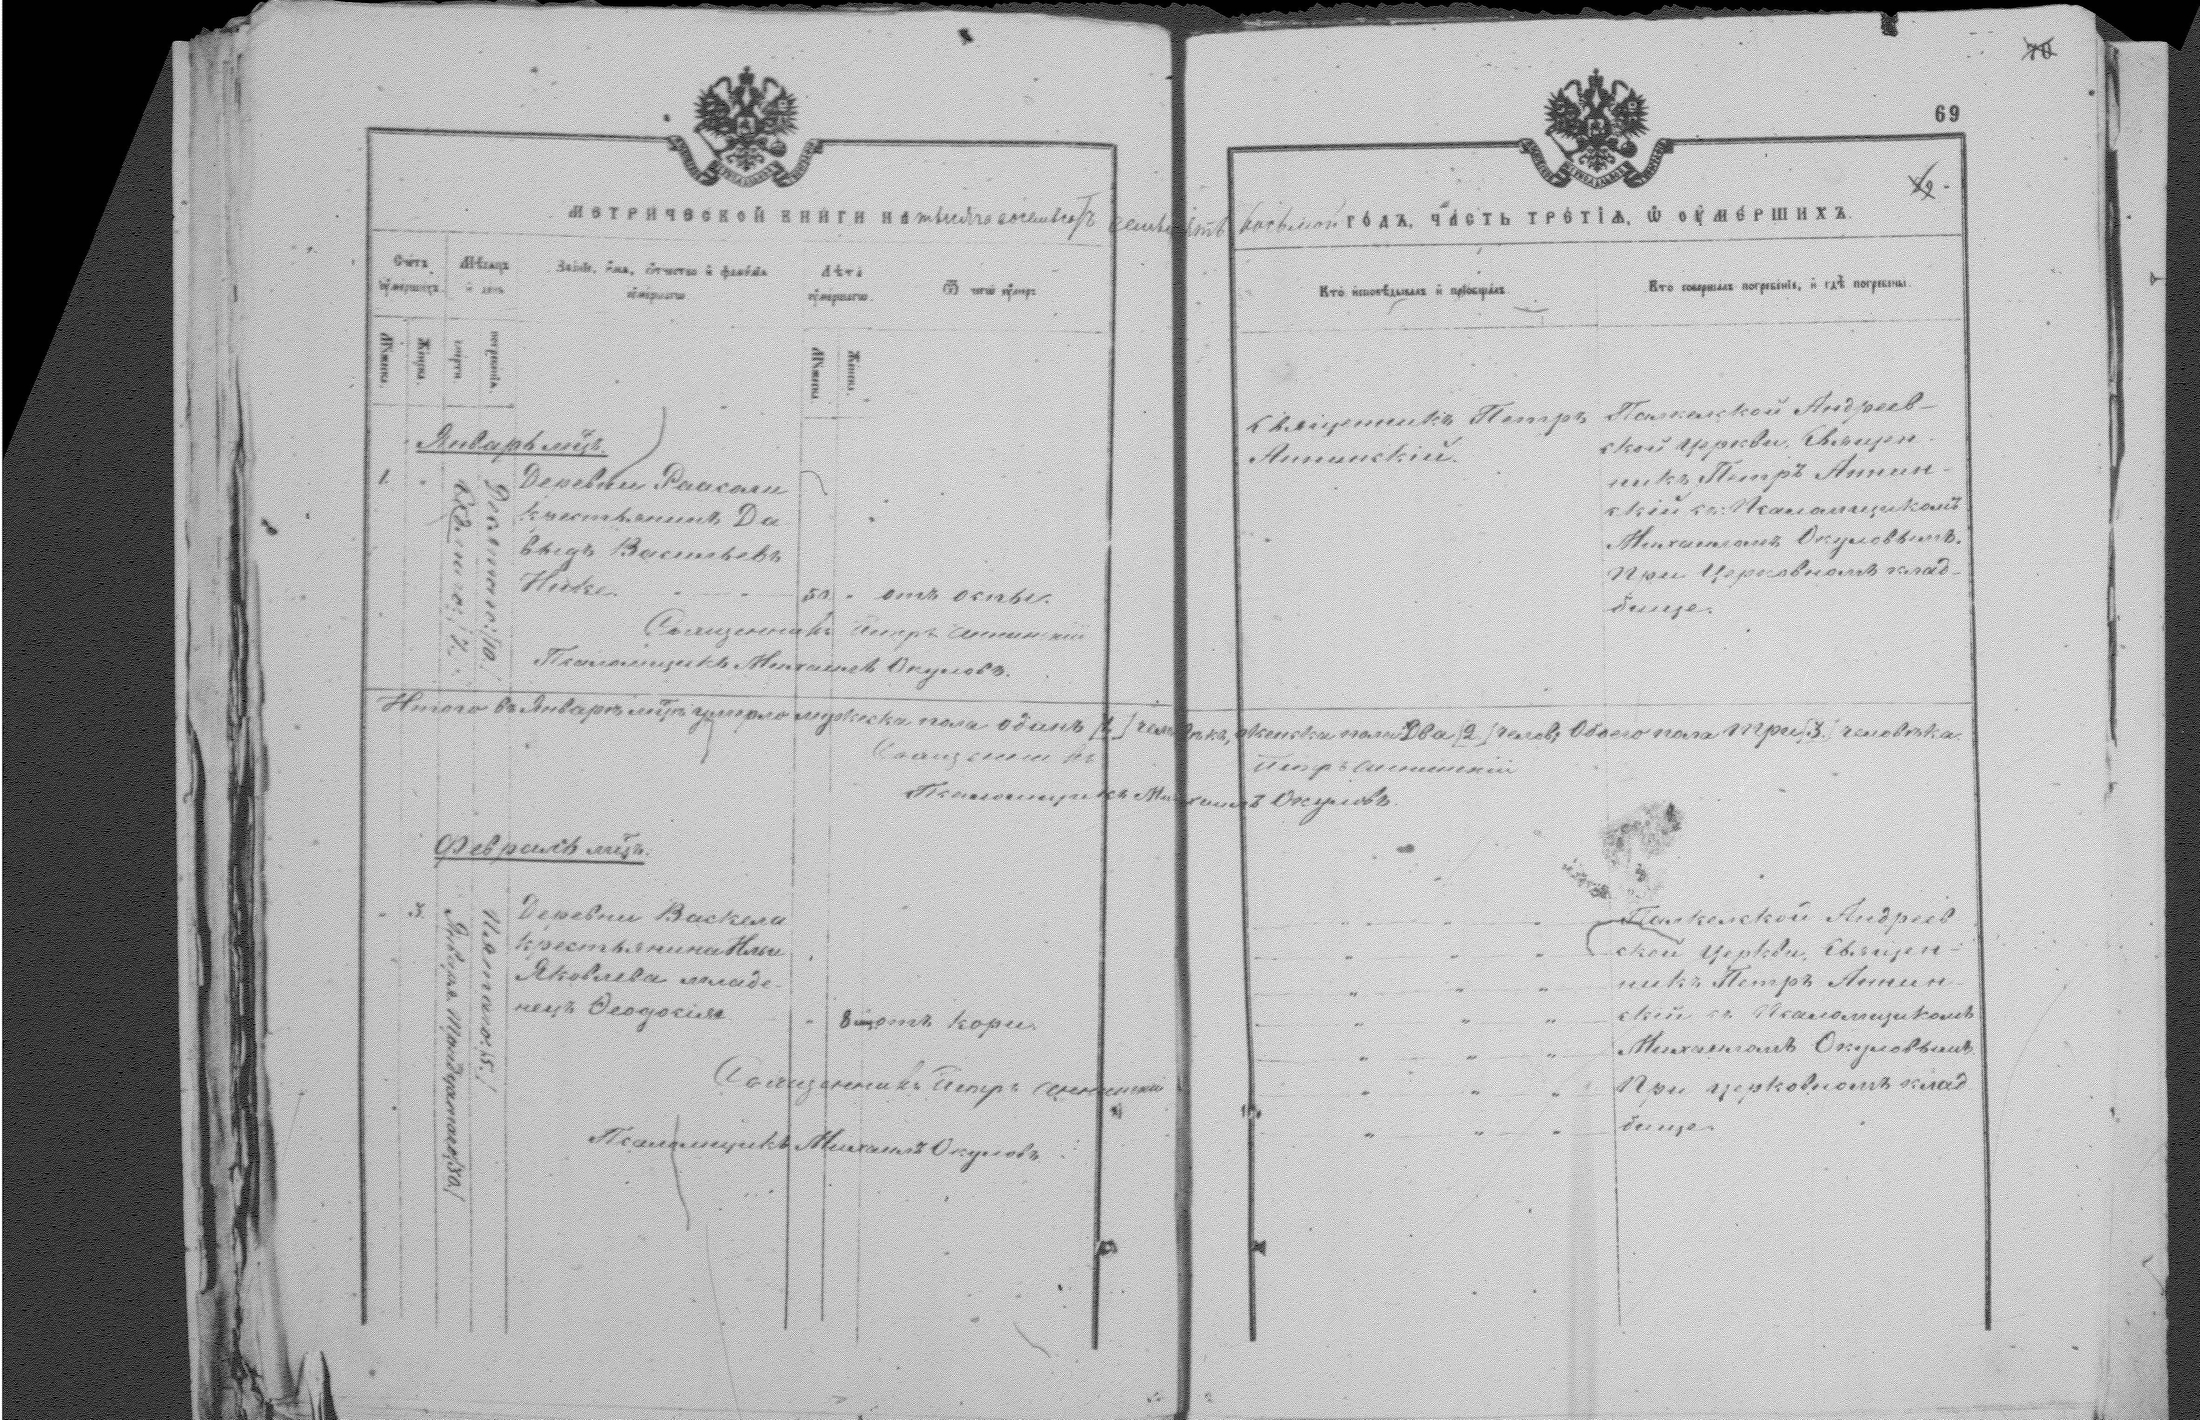 70
69
МЕТРИЧЕСКОЙ КНИГИ НА тысяча восемьсотъ семьдесятъ восьмой ГОДЪ, ЧАСТЬ ТРЕТІЯ, Ѿ ОУМЕРШИХЪ.
Счетъ оумершихъ.
Мѣсяцъ и день
Званіе, имя, отчество и фамилія оумершаго
Лѣта оумершаго.
Ѿ чего оумеръ
Кто исповѣдывалъ и пріобщалъ
Кто совершалъ погребеніе, и гдѣ погребены.
Мужеска.
Женска.
смерти
погребенія.
Мужеска
Женска.
Январь мцъ.
1. "
Деревни Раасали
крестьянинъ Да
выдъ Васильевъ
Нике. 50 " отъ оспы.
Священникъ Петръ
Аннинскій.
Палкелской Андреев-
ской Церкви, Священ-
никъ Петръ Аннин-
скій съ Псаломщикомъ
Михаиломъ Окуловымъ.
При Церковномъ клад-
бище.
Священникъ Петръ Аннинскій
Псаломщикъ Михаилъ Окуловъ.
Итого въ Январѣ мцѣ умерло мужеска пола одинъ [1] человѣкъ, женска пола Два [2] челов, Обоего пола три [3] человѣка.
Священникъ Петръ Аннинскій
Псаломщикъ Михаилъ Окуловъ.
Февраль мцъ.
" 3.
Января Тридцатаго /30/
Пятаго /5./
Деревни Васкела
крестьянина Ильи
Яковлева младе-
нецъ Ѳеодосія " 8 отъ кори.
Палкелской Андреев
ской Церкви, Священ-
никъ Петръ Аннин-
скій съ Псаломщикомъ
Михаиломъ Окуловымъ
При церковномъ клад
бище.
Священникъ Петръ Аннинскій
Псаломщикъ Михаилъ Окуловъ